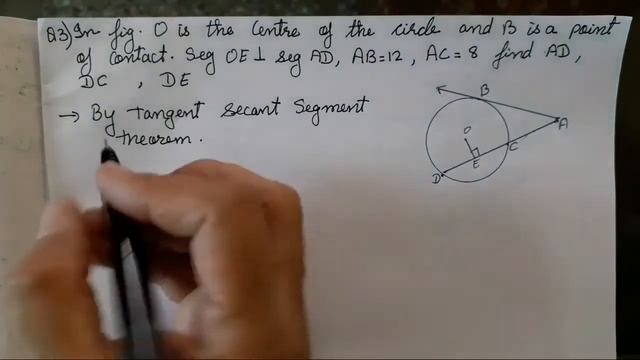 Q3) In fig. O is the Centre of the circle and B is a point
of contact. Seg OE ⊥ seg AD, AB=12, AC=8 find AD,
DC , DE
→ By tangent secant Segment
theorem.
B
A
O
C
E
D